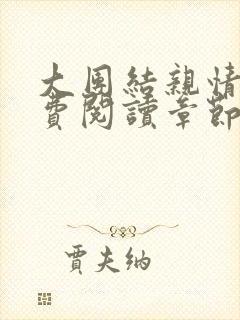 大團結親情
費閱讀章節
賈夫納